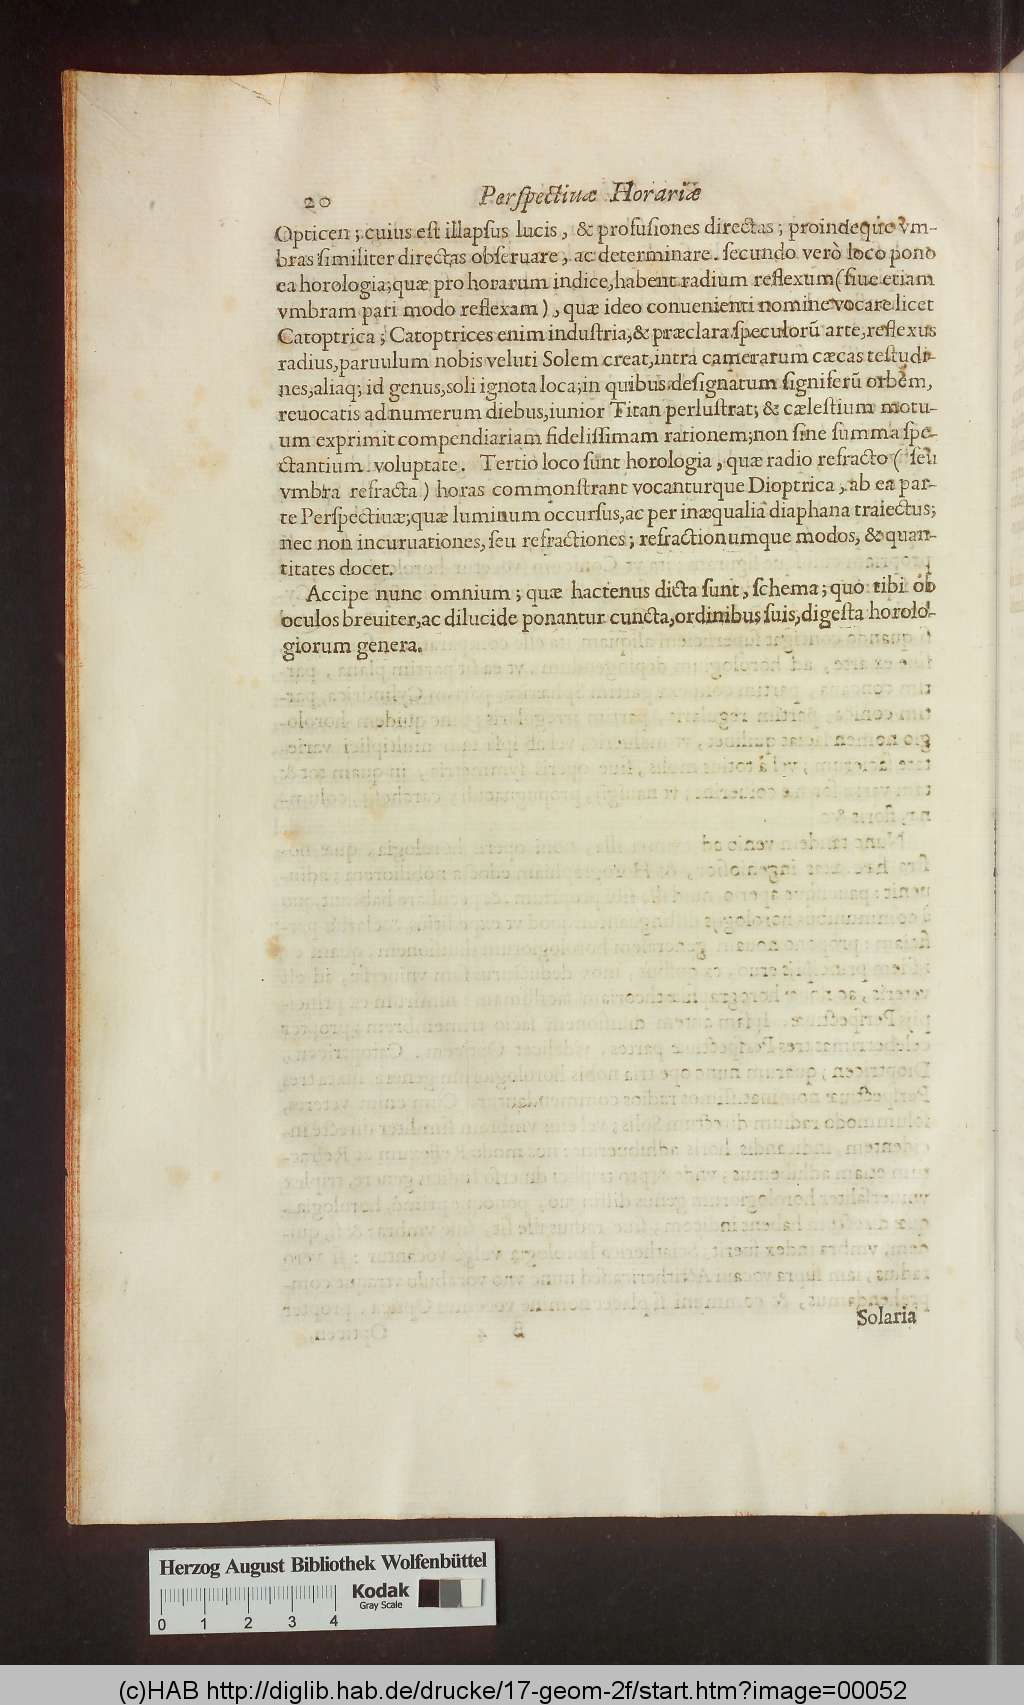 20 Perspectiuæ Horariæ
Opticen; cuius est illapsus lucis, & profusiones directas; proindeque vm-
bras similiter directas obseruare, ac determinare. secundo verò loco pono
ea horologia; quæ pro horarum indice, habent radium reflexum (siue etiam
vmbram pari modo reflexam), quæ ideo conuenienti nomine vocare licet
Catoptrica; Catoptrices enim industria, & præclara speculorū arte, reflexus
radius, paruulum nobis veluti Solem creat, intra camerarum cæcas testudi-
nes, aliaq; id genus, soli ignota loca; in quibus designatum signiferū orbem,
reuocatis ad numerum diebus, iunior Titan perlustrat; & cælestium motu-
um exprimit compendiariam fidelissimam rationem; non sine summa spe-
ctantium voluptate. Tertio loco sunt horologia, quæ radio refracto (seu
vmbra refracta) horas commonstrant vocanturque Dioptrica, ab ea par-
te Perspectiuæ; quæ luminum occursus, ac per inæqualia diaphana traiectus;
nec non incuruationes, seu refractiones; refractionumque modos, & quan-
titates docet.
Accipe nunc omnium; quæ hactenus dicta sunt, schema; quo tibi ob
oculos breuiter, ac dilucide ponantur cuncta, ordinibus suis, digesta horolo-
giorum genera.
Solaria
Herzog August Bibliothek Wolfenbüttel
Kodak
Gray Scale
0 1 2 3 4
(c)HAB http://diglib.hab.de/drucke/17-geom-2f/start.htm?image=00052